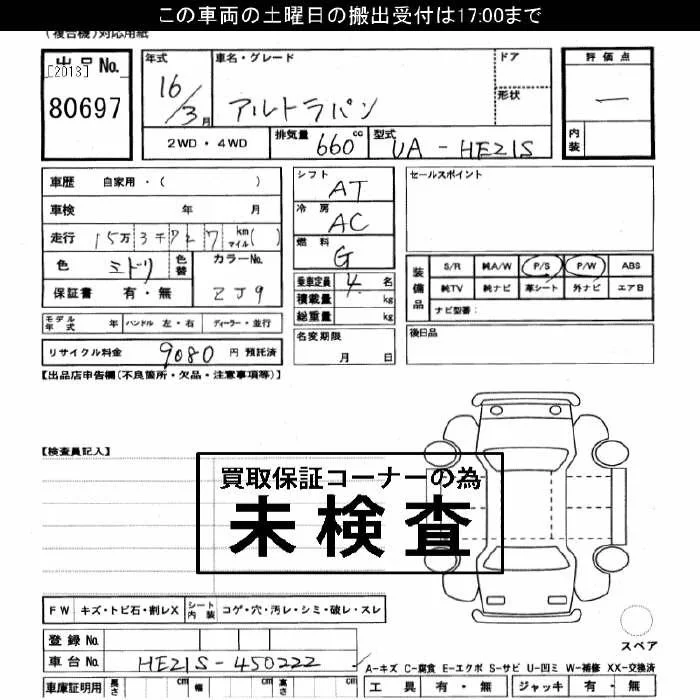 この車両の土曜日の搬出受付は17:00まで
(複合機)対応用紙
出品No.
[2013]
80697
年式
16/3月
車名・グレード
アルトラパン
ドア
形状
評価点
―
内装
2WD・4WD
排気量 660cc
型式 UA-HE21S
車歴 自家用・( )
車検 年 月
走行 15万3千727 km マイル( )
色 ミドリ 色替 カラーNo. ZJ9
保証書 有・無
モデル年式 年 ハンドル 左・右 ディーラー・並行
リサイクル料金 9080 円 預託済
シフト AT
冷房 AC
燃料 G
乗車定員 4 名
積載量 kg
総重量 kg
名変期限
月 日
セールスポイント
装備品
S/R 純A/W P/S P/W ABS
純TV 純ナビ 革シート 外ナビ エアB
ナビ型番:
後日品
【出品店申告欄(不良箇所・欠品・注意事項等)】
【検査員記入】
買取保証コーナーの為
未検査
FW キズ・トビ石・割レX シート内装 コゲ・穴・汚レ・シミ・破レ・スレ
スペア
登録No.
車台No. HE21S-450222
A-キズ C-腐食 E-エクボ S-サビ U-凹ミ W-補修 XX-交換済
車庫証明用 長さ cm 幅 cm 高さ cm
工具 有・無 ジャッキ 有・無